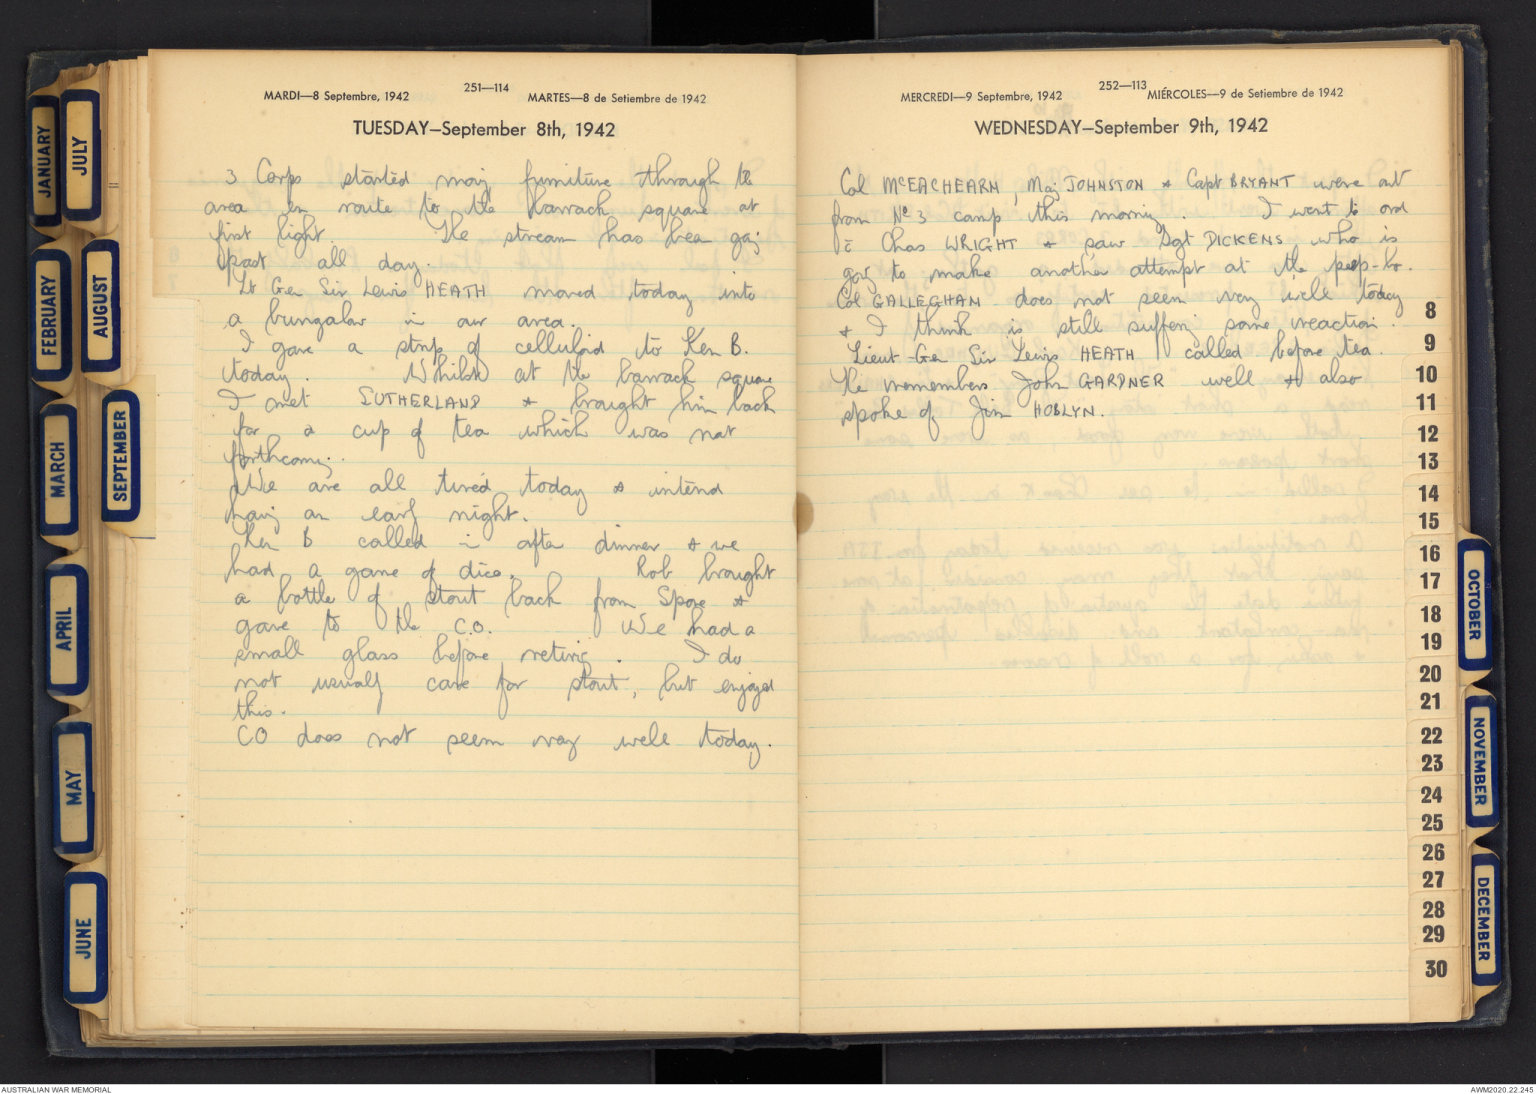 MARDI—8 Septembre, 1942
251—114
MARTES—8 de Setiembre de 1942
TUESDAY—September 8th, 1942
3 Corps started movg furniture through the
area en route to the barrack square at
first light. The stream has been gog
past all day.
Lt Gen Sir Lewis HEATH moved today into
a bungalow in our area.
I gave a strip of celluloid to Ken B.
today. Whilst at the barrack square
I met SUTHERLAND & brought him back
for a cup of tea which was not
forthcoming.
We are all tired today & intend
having an early night.
Ken B called in after dinner & we
had a game of dice. Rob brought
a bottle of stout back from Spore &
gave to the C.O. We had a
small glass before retiring. I do
not usually care for stout, but enjoyed
this.
CO does not seem very well today.
MERCREDI—9 Septembre, 1942
252—113
MIÉRCOLES—9 de Setiembre de 1942
WEDNESDAY—September 9th, 1942
Col McEACHEARN, Maj JOHNSTON & Capt BRYANT were out
from No 3 camp this morning. I went to ord
c̄ Chas WRIGHT & saw Sgt DICKENS who is
gog to make another attempt at the peep-bo.
Col GALLEGHAN does not seem very well today
& I think is still suffering some reaction.
Lieut-Gen Sir Lewis HEATH called before tea.
He remembers John GARDNER well & also
spoke of Jim HOBLYN.
JANUARY
FEBRUARY
MARCH
APRIL
MAY
JUNE
JULY
AUGUST
SEPTEMBER
OCTOBER
NOVEMBER
DECEMBER
8
9
10
11
12
13
14
15
16
17
18
19
20
21
22
23
24
25
26
27
28
29
30
AUSTRALIAN WAR MEMORIAL
AWM2020.22.245